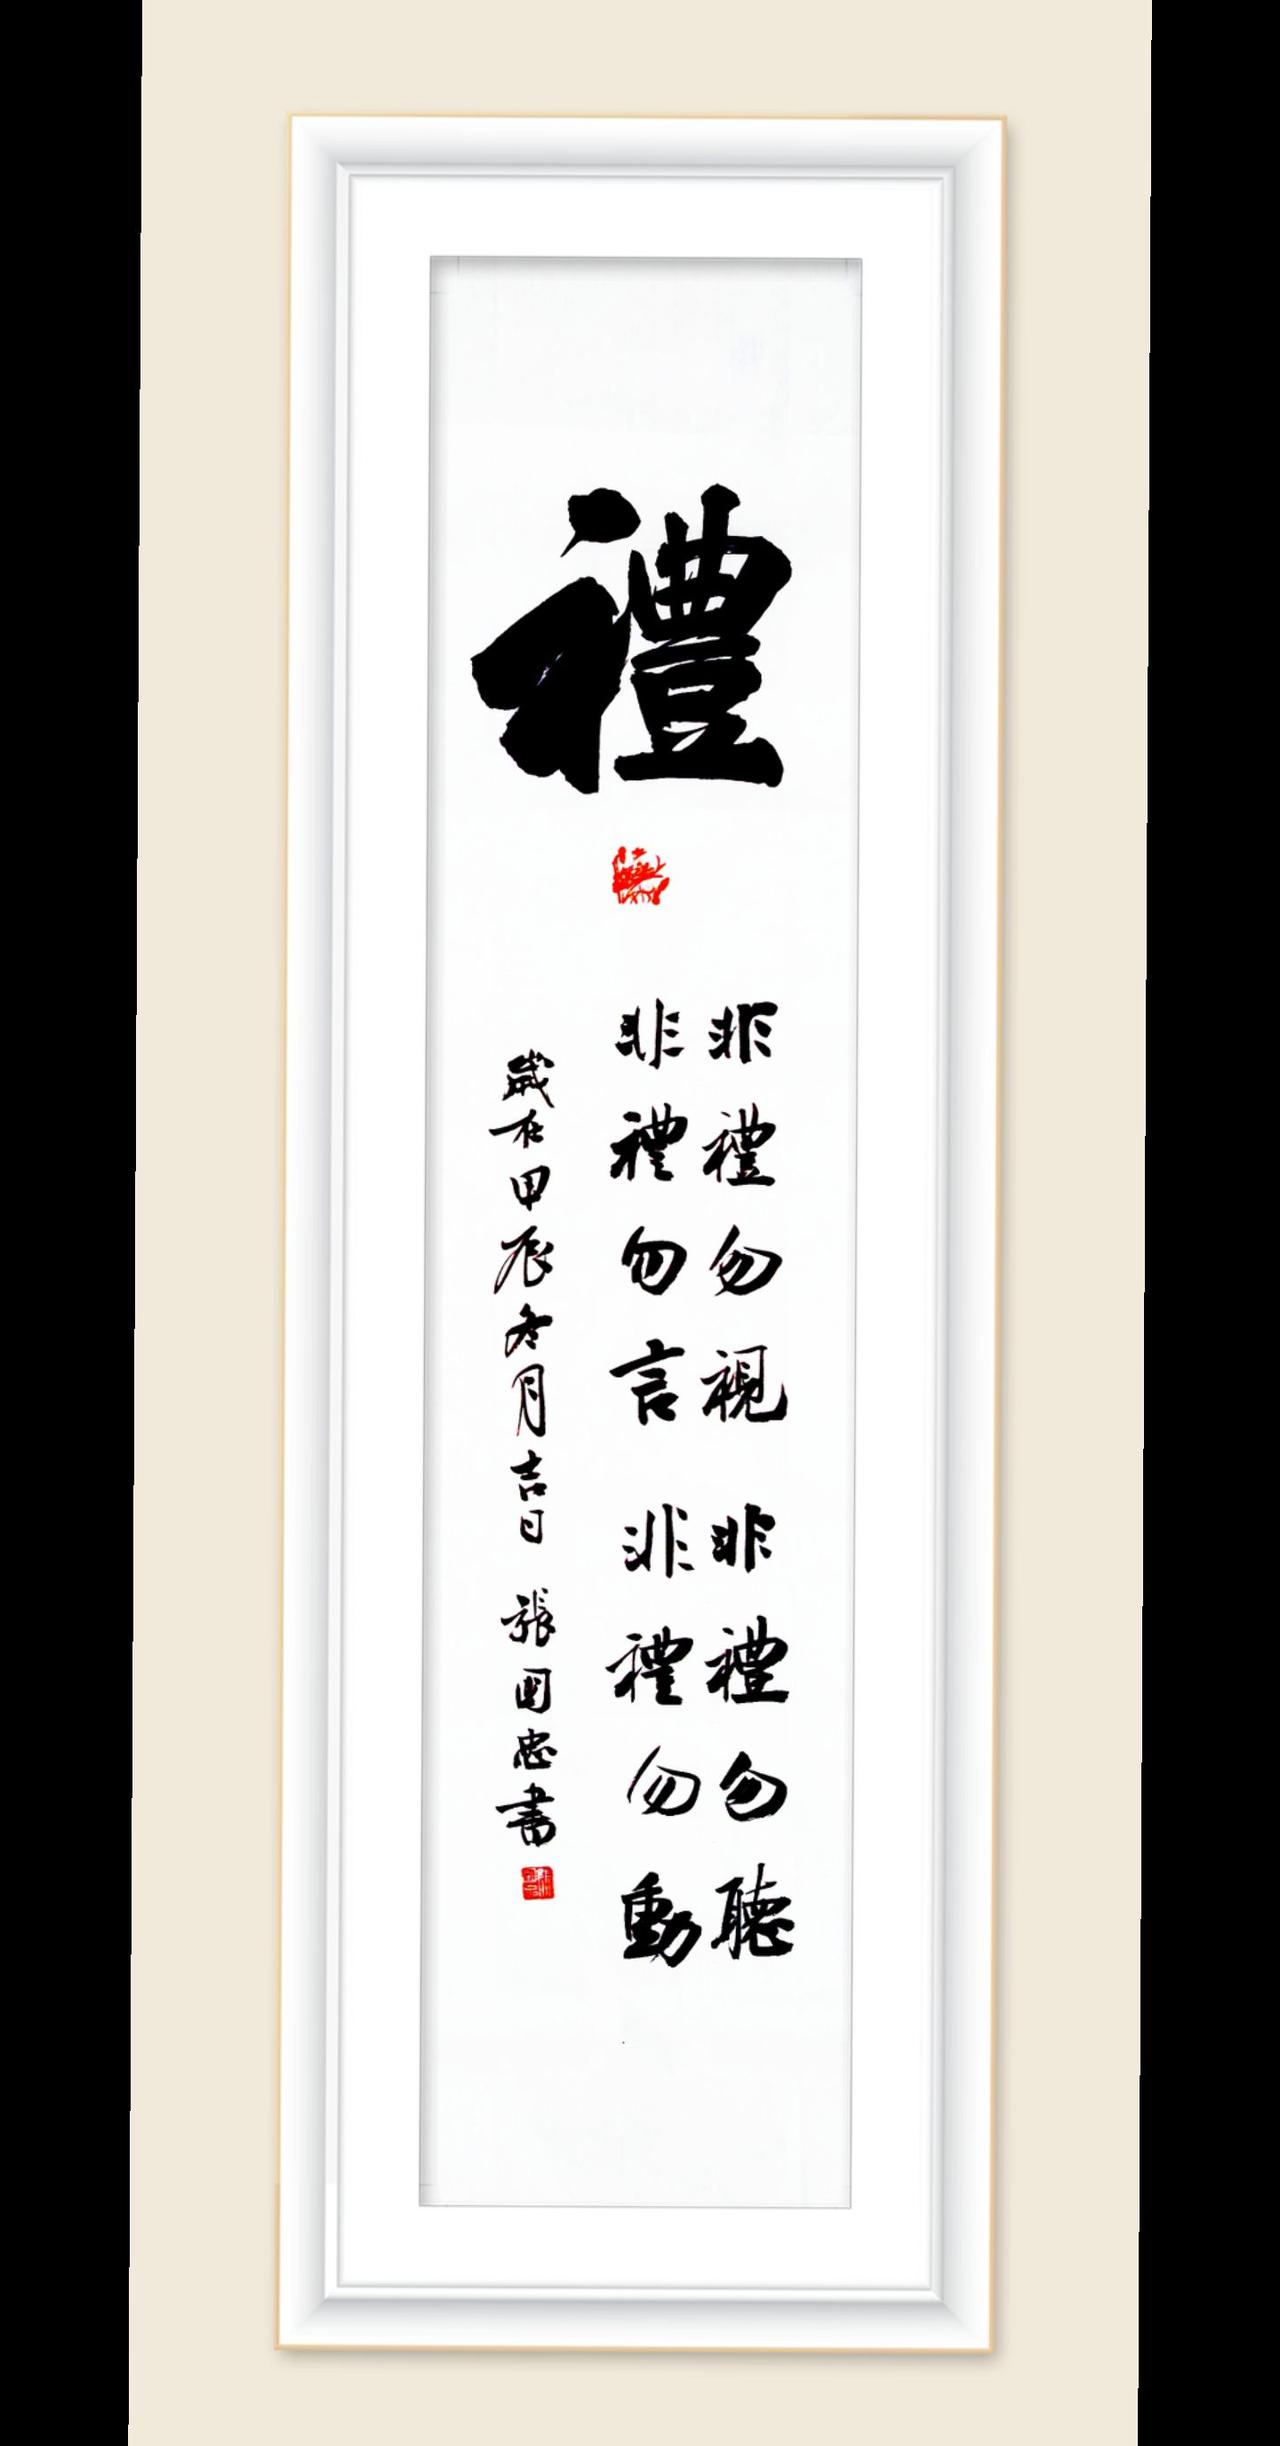 禮
非禮勿視 非禮勿聽
非禮勿言 非禮勿動
歲在甲辰冬月吉日 張國忠書